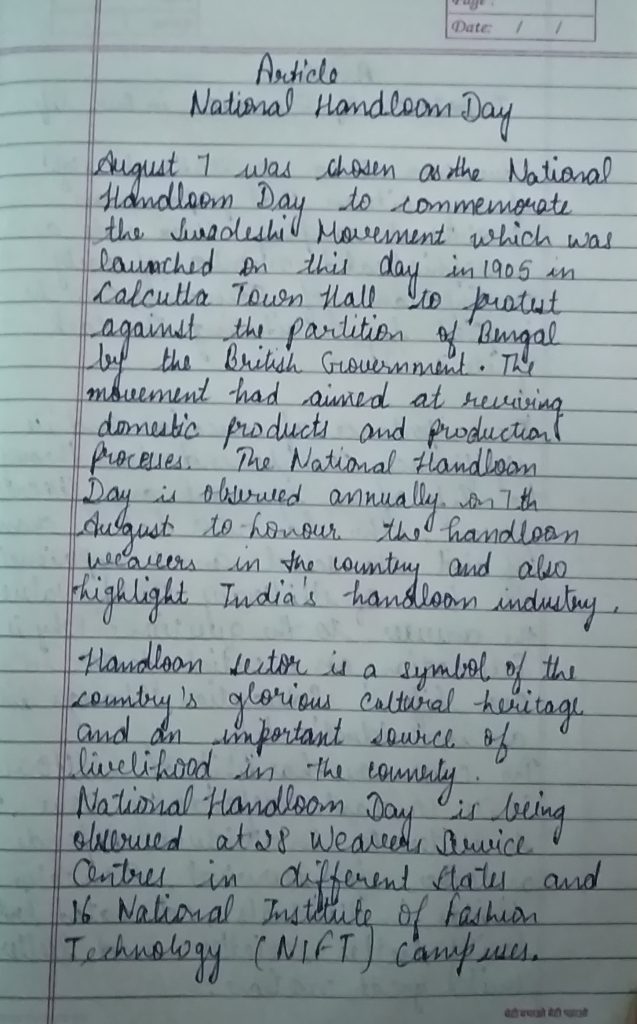 Page :
Date: / /
Article
National Handloom Day
August 7 was chosen as the National
Handloom Day to commemorate
the Swadeshi Movement which was
launched on this day in 1905 in
Calcutta Town Hall to protest
against the partition of Bengal
by the British Government. The
movement had aimed at reviving
domestic products and production
processes. The National Handloon
Day is observed annually on 7th
August to honour the handloon
weavers in the country and also
highlight India's handloom industry.
Handloon sector is a symbol of the
country's glorious cultural heritage
and an important source of
livelihood in the counrty.
National Handloom Day is being
observed at 28 Weavers Service
Centres in different states and
16 National Institute of Fashion
Technology (NIFT) Campuses.
बेटी बचाओ बेटी पढ़ाओ